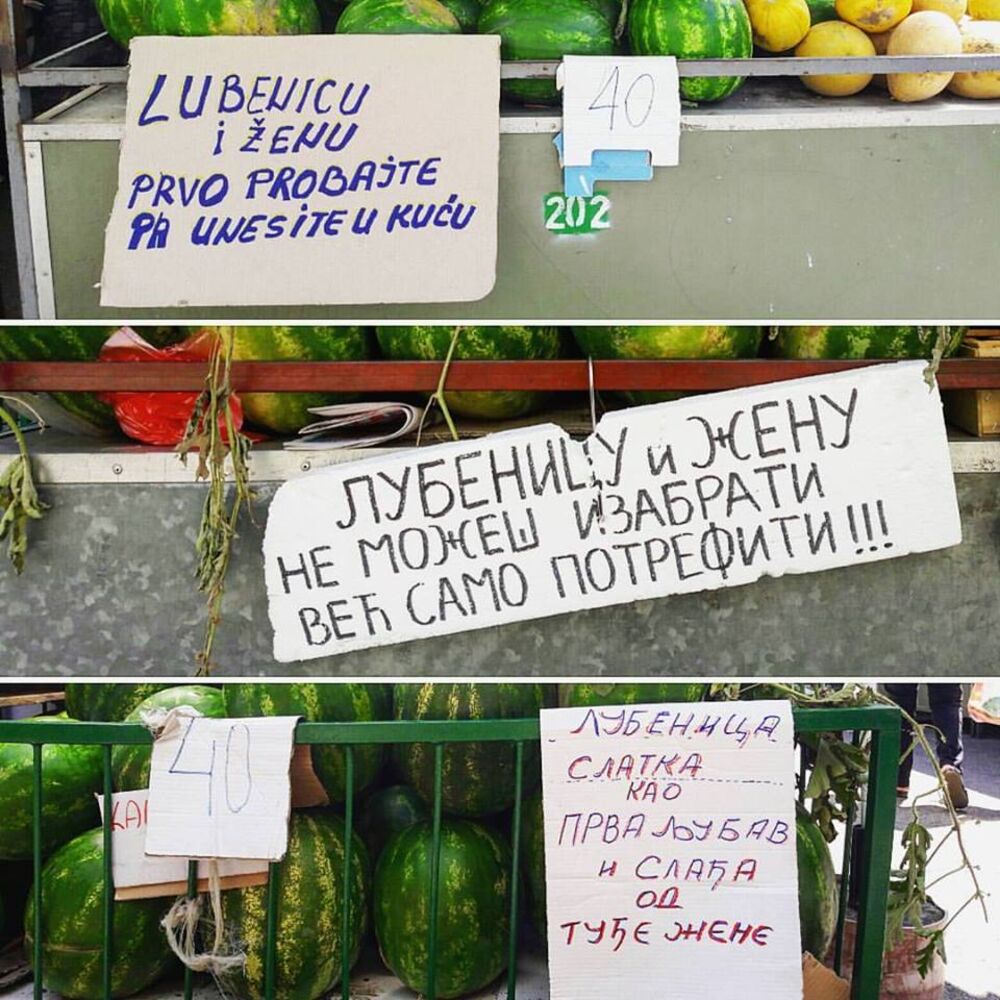 LUBENICU
i ŽENU
PRVO PROBAJTE
PA UNESITE U KUĆU
40
202
ЛУБЕНИЦУ и ЖЕНУ
НЕ МОЖЕШ ИЗАБРАТИ
ВЕЋ САМО ПОТРЕФИТИ!!!
40
ЛУБЕНИЦА
СЛАТКА
КАО
ПРВА ЉУБАВ
И СЛАЂА
ОД
ТУЂЕ ЖЕНЕ